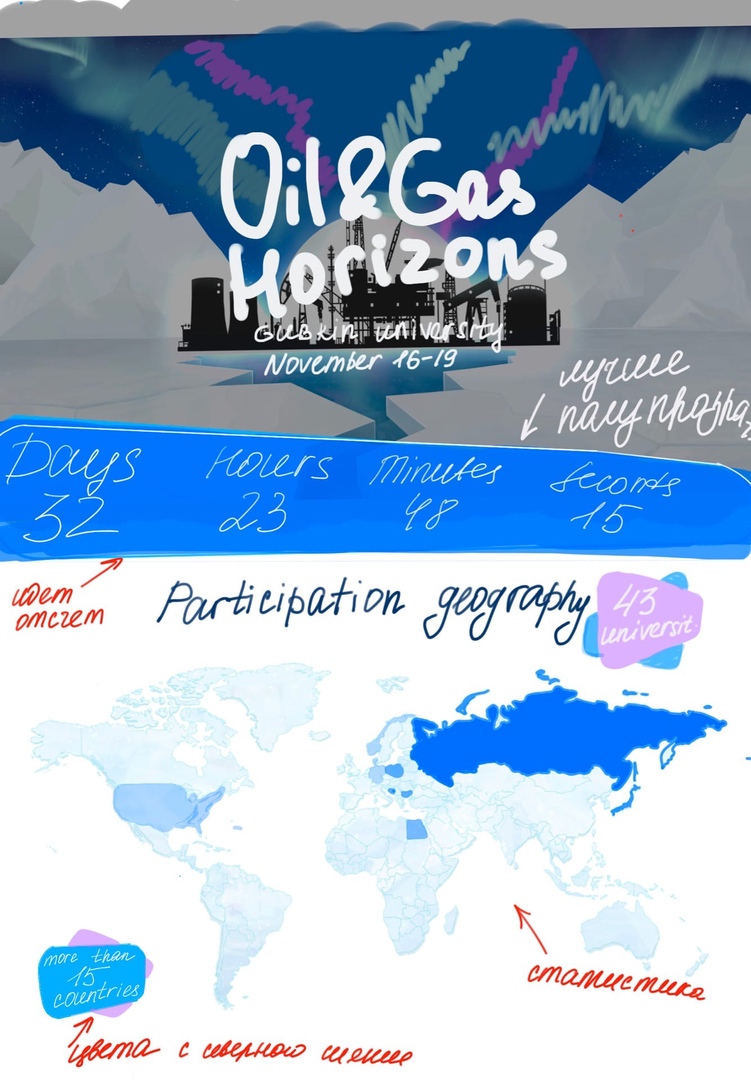 Oil & Gas
Horizons
Gubkin University
November 16-19
лучше
полупрозра
Days Hours Minutes Seconds
32 23 48 15
идет
отсчет
Participation geography
43
universit.
more than
15
countries
статистика
цвета с северного сияние